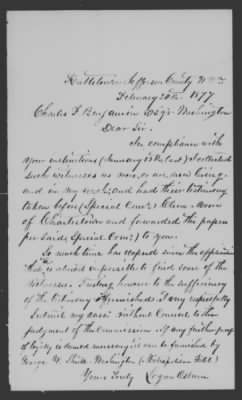 Kabletown Jefferson County W Va
February 20th 1877
Charles F. Benjamin Esqr Washington
Dear Sir.
In compliance with
your instructions (January 13th last) I collected
such witnesses as now are
and in my and had their testimony
taken before (Special Comr) Cleon Moore
of Charlestown and forwarded the papers
per said (Special Comr) to you.
So much time has elapsed since the
that it is almost impossible to find some of the
witnesses. Trusting however to the sufficiency
of the testimony furnished. I respectfully
submit my case without Counsel to the
judgment of the Commission. If any further proof
of loyalty is deemed necessary it can be furnished by
George W. Washington (Metropolitan Hotel)
Yours truly Logan Osburn